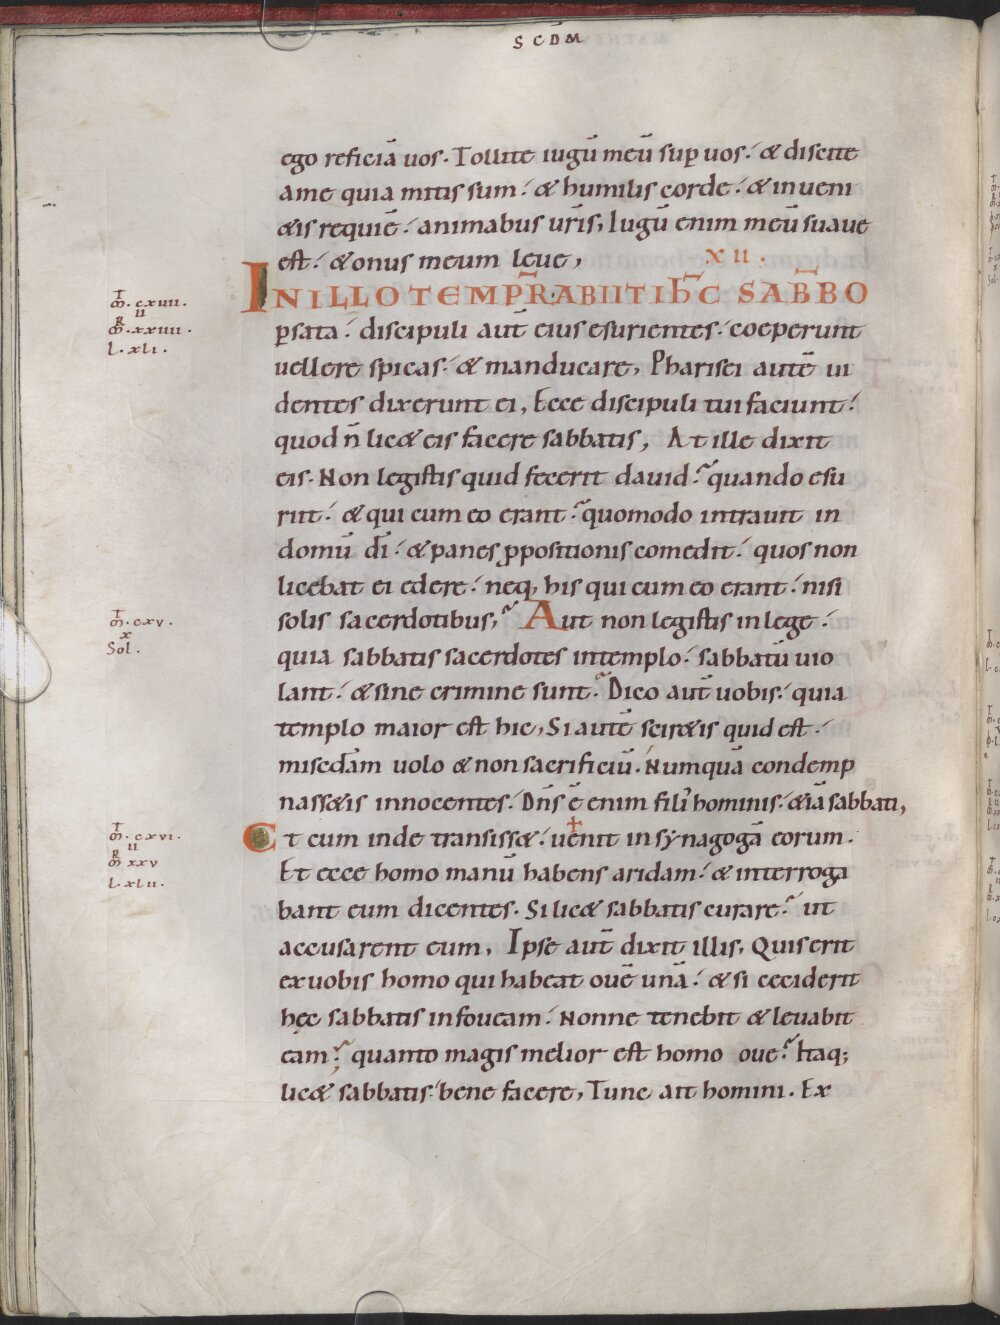 SCDM
ego reficiā uos. Tollite iugū meū sup uos. & discite
ame quia mitis sum. & humilis corde. & inueni
&is requiē. animabus ur̄is, Iugū enim meū suaue
est. & onus meum leue, XII.
IN ILLO TEMPR̄. ABIIT IH̄C SABBO
ꝑsata. discipuli aut̄ eius esurientes. coeperunt
uellere spicas. & manducare, Pharisei autē ui
dentes dixerunt ei, Ecce discipuli tui faciunt.
quod n̄ lic& eis facere sabbatis, At ille dixit
eis. Non legistis quid fecerit dauid. quando esu
riit. & qui cum eo erant. quomodo intrauit in
domū dī. & panes ꝓpositionis comedit. quos non
licebat ei edere. neq, his qui cum eo erant. nisi
solis sacerdotibus, Aut non legistis in lege.
quia sabbatis sacerdotes intemplo. sabbatū uio
lant. & sine crimine sunt. Dico aut̄ uobis. quia
templo maior est hic, Si autē scir&is quid est.
misc̄dam uolo & non sacrificiū. Numquā condemp
nass&is innocentes. Dn̄s ē enim fili hominis. &iā sabbati,
Et cum inde transiss&. uenit in synagogā eorum.
Et ecce homo manū habens aridam. & interroga
bant eum dicentes. Si lic& sabbatis curare. ut
accusarent eum, Ipse aut̄ dixit illis, Quis erit
exuobis homo qui habeat ouē unā. & si ceciderit
hęc sabbatis in foueam. Nonne tenebit & leuabit
eam. quanto magis melior est homo oue. Itaq;
lic& sabbatis. bene facere, Tunc ait homini. Ex
T
m̄. cxiiii.
R II
m̄. xxiiii.
L. xli.
T
m̄. cxv.
x
Sol.
T
m̄. cxvi.
R II
m̄ xxv
L. xlii.